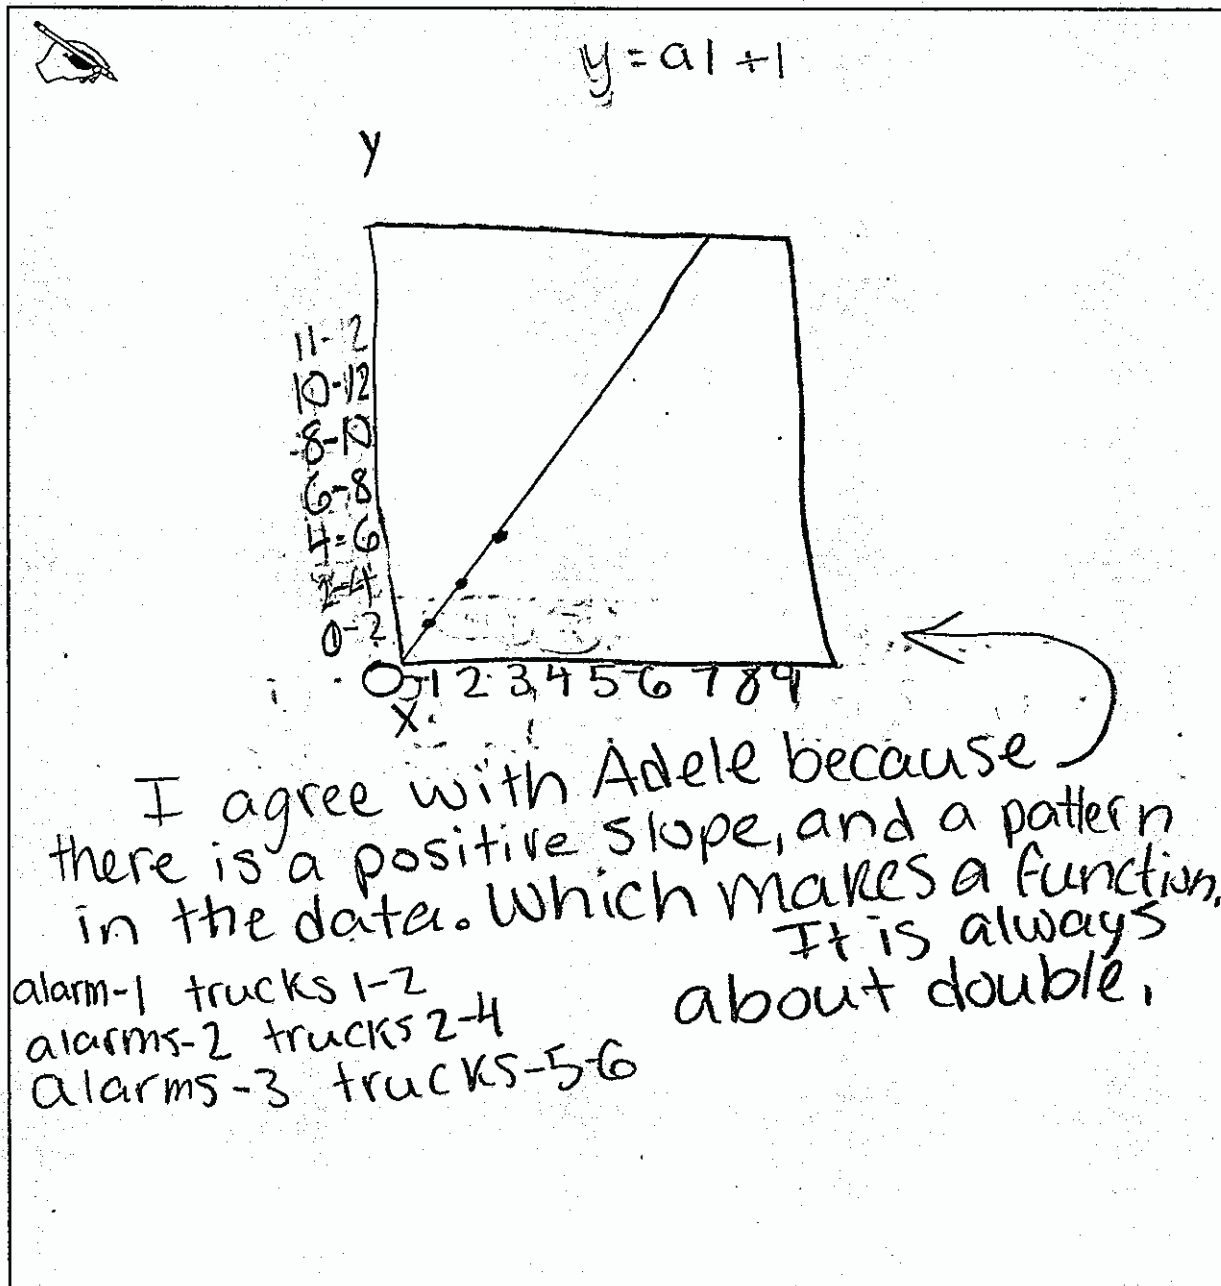 y = a1 + 1
y
11-12
10-12
8-10
6-8
4-6
2-4
0-2
0 1 2 3 4 5 6 7 8 9
x
I agree with Adele because
there is a positive slope, and a pattern
in the data. Which makes a function.
It is always
about double.
alarm-1 trucks 1-2
alarms-2 trucks 2-4
alarms-3 trucks-5-6